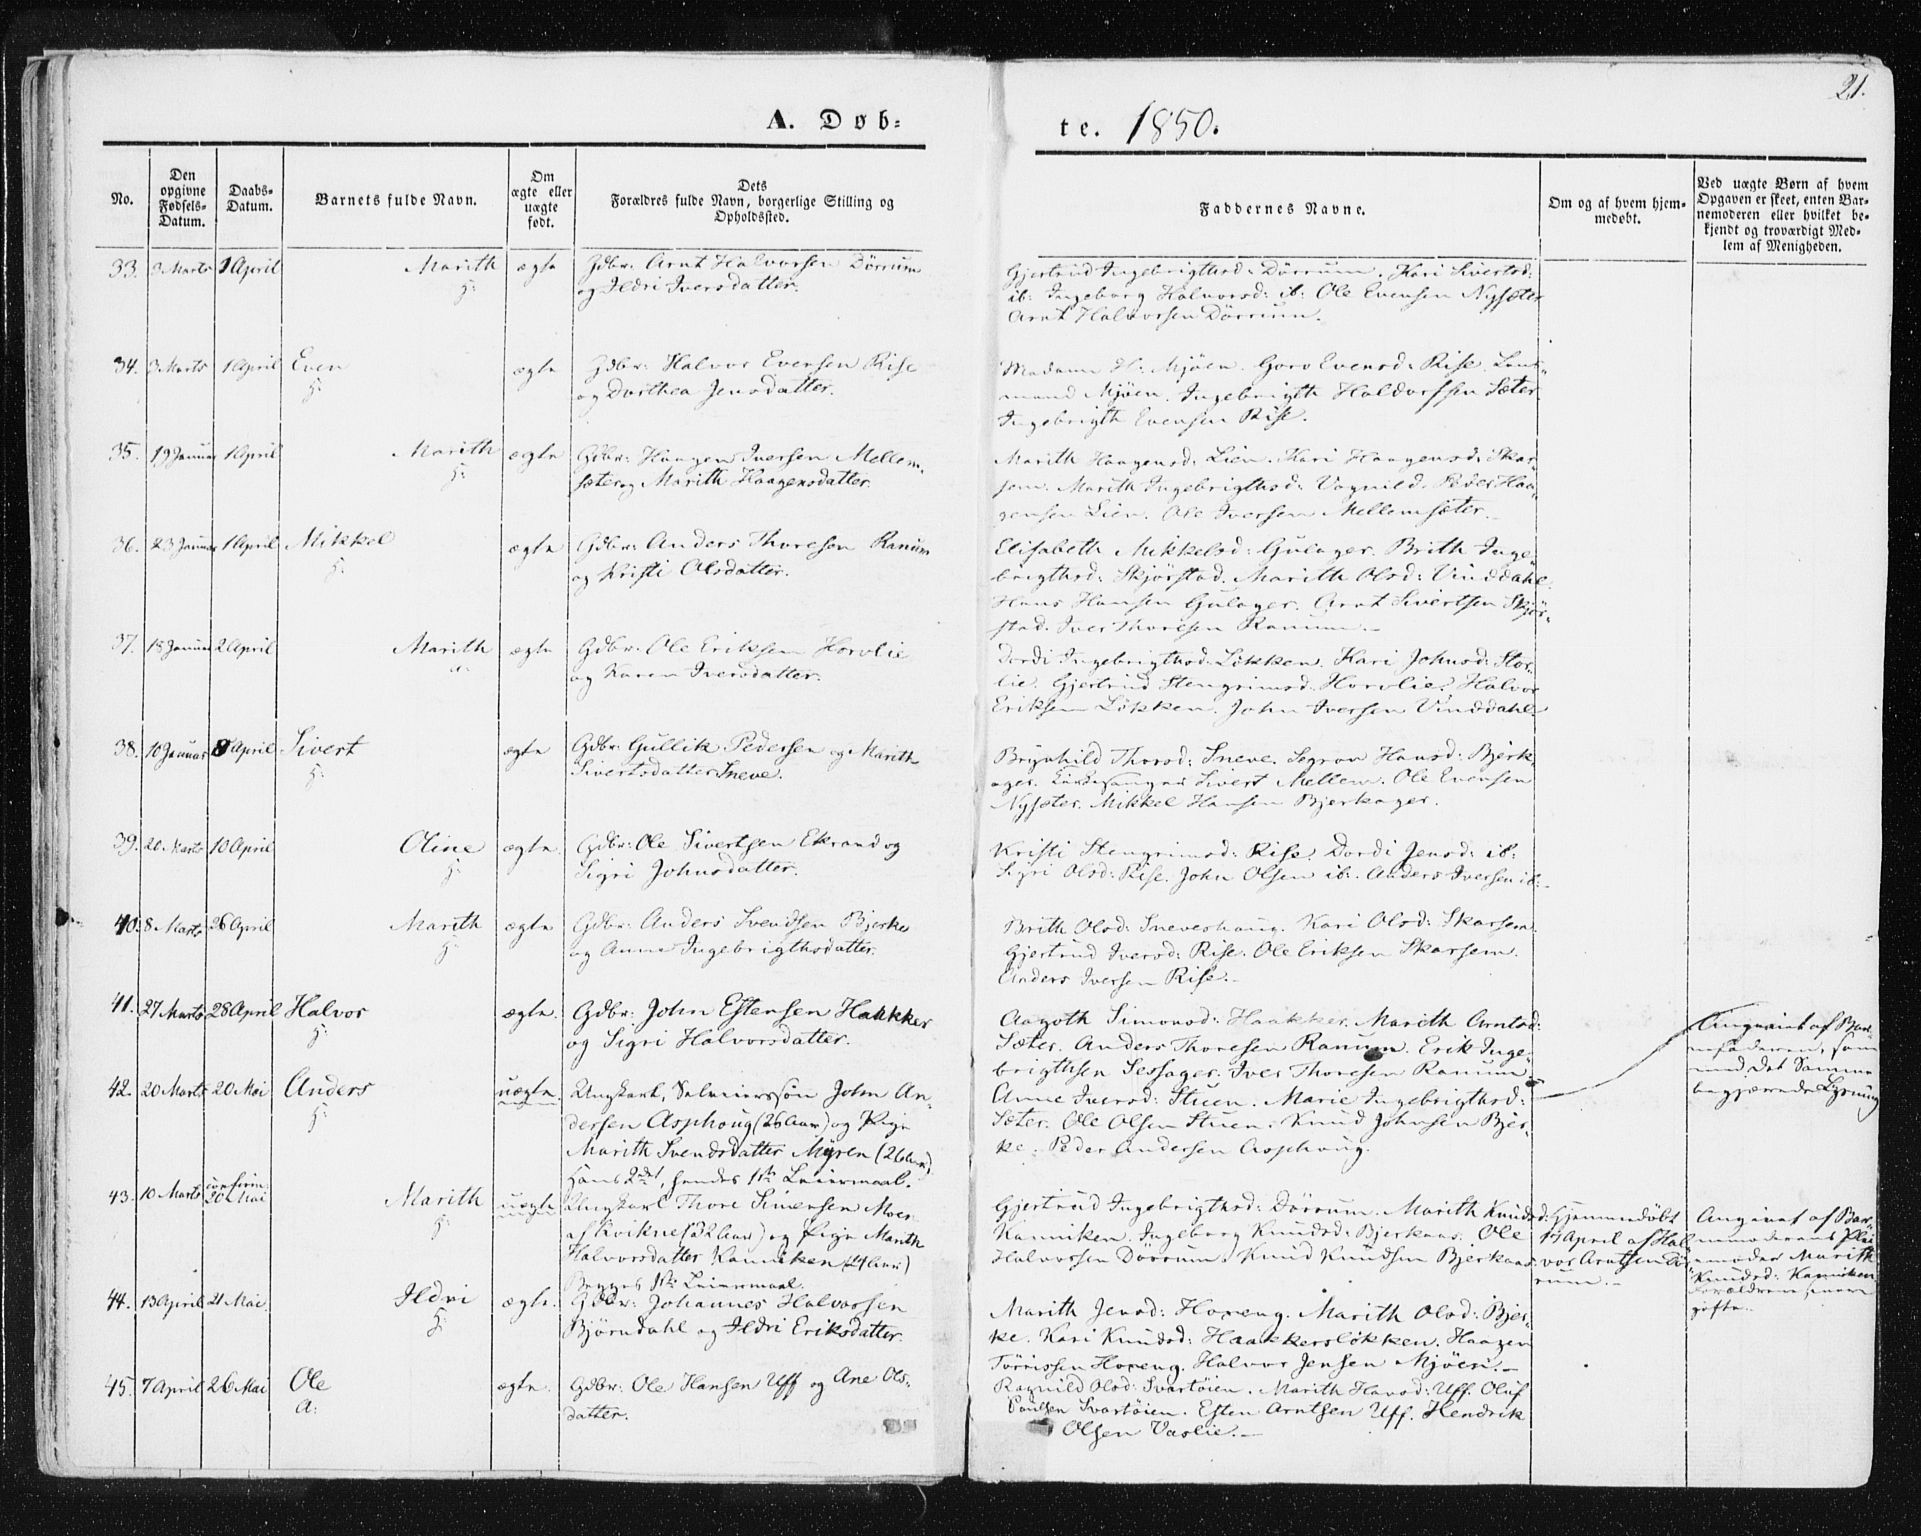 21.
A. Døb-
te. 1850.
No.
Den opgivne Fødsels-Datum.
Daabs-Datum.
Barnets fulde Navn.
Om ægte eller uægte født.
Dets Forældres fulde Navn, borgerlige Stilling og Opholdssted.
Faddernes Navne.
Om og af hvem hjem-medøbt.
Ved uægte Børn af hvem Opgaven er skeet, enten Bar-nemoderen eller hvilket be-kjendt og troværdigt Med-lem af Menigheden.
33. 3 Marts 1 April Marith ægte Gdbr: Arnt Halvorsen Dörrum
H:
og Ildri Iversdatter.
Gjertrud Ingebrigthsd: Dörrum. Kari Sivertsd:
ib: Ingeborg Halvorsd: ib: Ole Evensen Nysæter
Arnt Halvorsen Dörrum.
34. 3 Marts 1 April Even ægte Gdbr: Halvor Evensen Rise
H:
og Dorthea Jensdatter.
Madame H: Mjöen. Goro Evensd: Rise. Lens-
mand Mjöen. Ingebrigth Haldorssen Sæter.
Ingebrigth Evensen Rise.
35. 19 Januar 1 April Marith ægte Gdbr: Haagen Iversen Mellem-
H:
sæter og Marith Haagensdatter.
Marith Haagensd: Lien. Kari Haagensd: Skar-
sem. Marith Ingebrigthsd: Vognild. Peder Haa-
gensen Lien. Ole Iversen Mellemsæter.
36. 23 Januar 1 April Mikkel ægte Gdbr: Anders Thoresen Ranum
H:
og Kristi Olsdatter.
Elisabeth Mikkelsd: Gulager. Brith Inge-
brigthsd: Skjörstad. Marith Olsd: Vinddahl.
Hans Hansen Gulager. Arnt Sivertsen Skjör-
stad. Iver Thoresen Ranum.
37. 18 Januar 2 April Marith ægte Gdbr: Ole Eriksen Horvlie
og Karen Iversdatter.
Dordi Ingebrigthsd: Lökken. Kari Johnsd: Stor-
lie. Gjertrud Stengrimsd: Horvlie. Halvor
Eriksen Lökken. John Iversen Vinddahl.
38. 10 Januar 8 April Sivert ægte Gdbr: Gullik Pedersen og Marith
H:
Sivertsdatter Sneve.
Brynhild Thorsd: Sneve. Segrov Hansd: Bjerk-
ager. Kirkesanger Sivert Mellem. Ole Evensen
Nysæter. Mikkel Hansen Bjerkager.
39. 20 Marts 10 April Oline ægte Gdbr: Ole Sivertsen Ekrand og
H:
Sigri Johnsdatter.
Kristi Stengrimsd: Rise. Dordi Jensd: ib:
Sigri Olsd: Rise. John Olsen ib: Anders Iversen ib:
40. 8 Marts 26 April Marith ægte Gdbr: Anders Svendsen Bjerke
H:
og Anne Ingebrigthsdatter.
Brith Olsd: Sneveshaug. Kari Olsd: Skarsem.
Gjertrud Iversd: Rise. Ole Eriksen Skarsem.
Anders Iversen Rise.
41. 27 Marts 28 April Halvor ægte Gdbr: John Estensen Haakker
H:
og Sigri Halvorsdatter.
Aagoth Simonsd: Haakker. Marith Arntsd:
Sæter. Anders Thoresen Ranum. Erik Inge-
brigthsen Sessager. Iver Thoresen Ranum.
42. 20 Marts 20 Mai Anders uægte Ungkarl, Selveierssön John An-
H:
dersen Asphoug (26 Aar) og Pige
Marith Svendsdatter Myren (26 Aar)
Hans 2det, hendes 1ste Leiermaal.
Anne Iversd: Stuen. Marie Ingebrigthsd:
Sæter. Ole Olsen Stuen. Knud Johnsen Bjer-
ke. Peder Andersen Asphoug.
Angivet af Bar-
nefaderen, som
med det Samme
begjærede Lysning
43. 10 Marts confirm: 20 Mai Marith uægte Ungkarl Thore Simensen Moen
H:
af Kvikne (32 Aar) og Pige Marith
Halvorsdatter Kanniken (24 Aar)
Begges 1ste Leiermaal.
Gjertrud Ingebrigthsd: Dörrum. Marith Knudsd:
Kanniken. Ingeborg Knudsd: Bjerkaas. Ole
Halvorsen Dörrum. Knud Knudsen Bjerkaas.
Hjemmedöbt
15 April af Hal-
vor Arntsen Dör-
rum.
Angivet af Bar-
nemoderens Plei-
emoder Marith
Knudsd: Kanniken
Forældrene ere
gifte.
44. 13 April 21 Mai Ildri ægte Gdbr: Johannes Halvorsen
H:
Björndahl og Ildri Eriksdatter.
Marith Jensd: Hoxeng. Marith Olsd: Bjer-
ke. Kari Knudsd: Haakkerslökken. Haagen
Törrissen Hoxeng. Halvor Jensen Mjöen.
45. 7 April 26 Mai Ole ægte Gdbr: Ole Hansen Uff og Ane Ols-
A:
datter.
Ragnild Olsd: Svartöien. Marith Hansd: Uff. Oluf
Paulsen Svartöien. Esten Arntsen Uff. Hendrik
Olsen Vaslie.